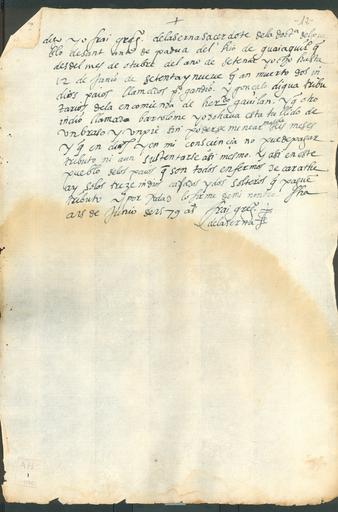 +
-12-
digo yo frai greg.º de la serna sacerdote de la dotª del pue
blo de sant antonio de padua del Rio de guaiaquil q̃
desdel mes de otubre del año de setenta y ocho hasta
12 de Junio de setenta y nueve q̃ an muerto dos in
dios llamados gonçalo tribu
tarios de la encomienda de her.do gavilan. y q̃ otro
indio llamado bartolome yoshaua esta tullido de
un braso y un pie sin poderse menear muchos meses
y q̃ en dios y en mi consciencia no puede pagar
tributo ni aun sustentarse asi mesmo. y asi en este
pueblo de los q̃ son todos enfermos de carathe
ay solos treze indios casados y dos solteros q̃ paguē
tributo y por verdad lo firme de mi nombre. fha
a 15 de Junio de 1579 aº
frai greg.º
de la serna